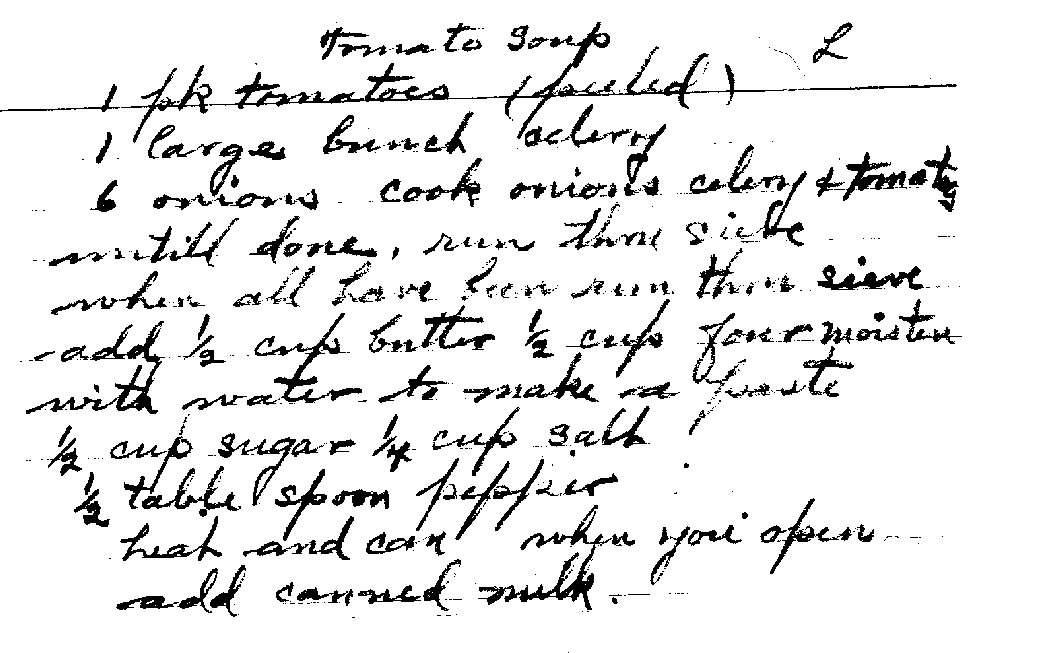 Tomato Soup L
1 pk tomatoes (peeled)
1 large bunch celery
6 onions cook onions celery + tomatoes
untill done, run thru sieve
when all have been run thru sieve
add 1/2 cup butter 1/2 cup flour moisten
with water to make a paste
1/2 cup sugar 1/4 cup salt
1/2 table spoon pepper
heat and can when you open
add canned milk.